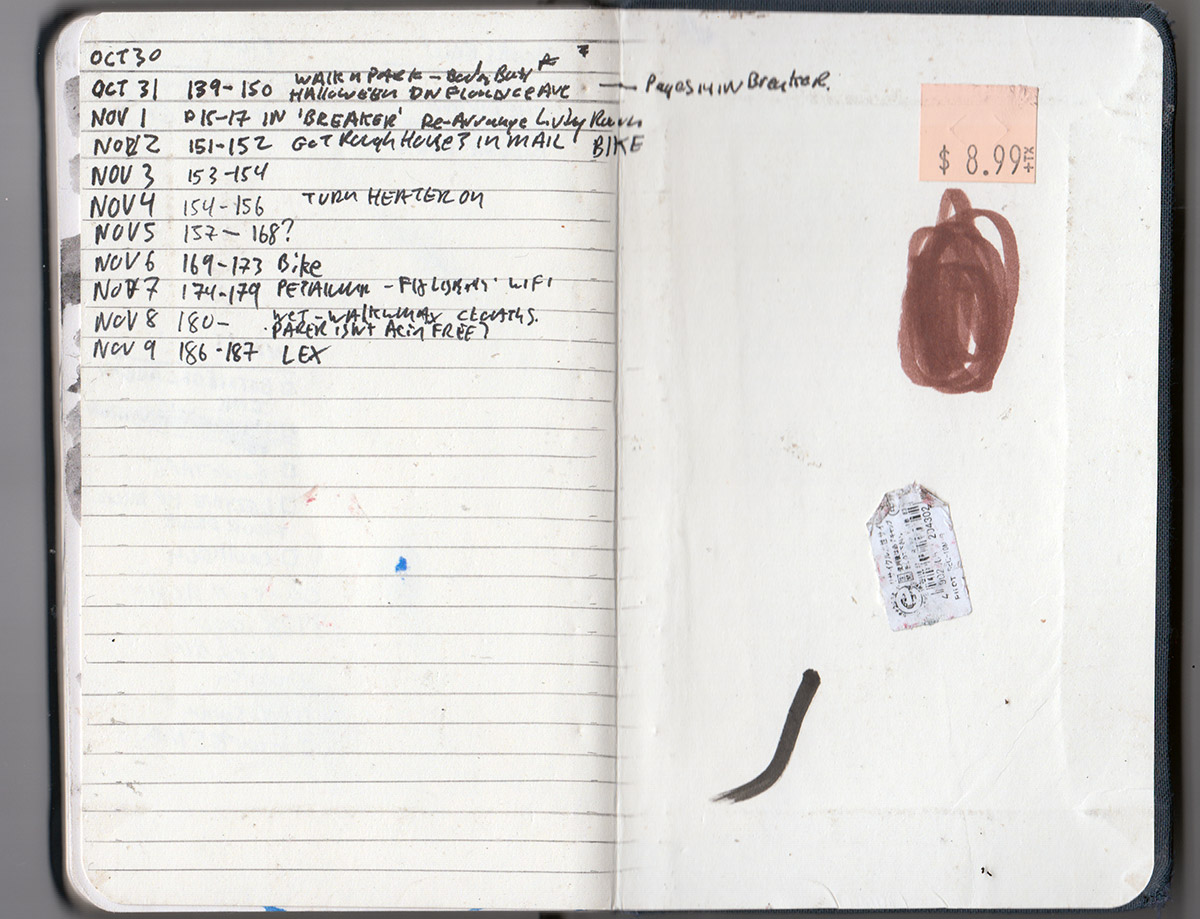 OCT 30
OCT 31 139-150 WALK PARK - HALLOWEEN ON FLORENCE AVE — Pages 14 IN Breaker.
NOV 1 P 15-17 IN 'BREAKER' Re-Arrange Living Room
NOV 2 151-152 GOT Rough House 3 IN MAIL BIKE
NOV 3 153-154
NOV 4 154-156 TURN HEATER ON
NOV 5 157- 168?
NOV 6 169-173 Bike
NOV 7 174-179 PETALUMA - WIFI
NOV 8 180- WET - WALK
PAPER ISNT ACID FREE?
NOV 9 186-187 LEX
$ 8.99 +TX
PILOT